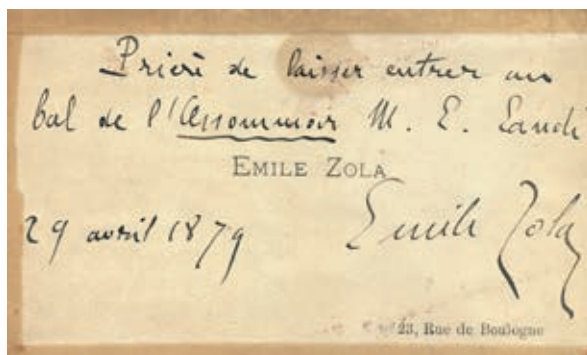 Prière de laisser entrer au
bal de l'Assommoir M. E.
EMILE ZOLA
29 avril 1879
Emile Zola
23, Rue de Boulogne